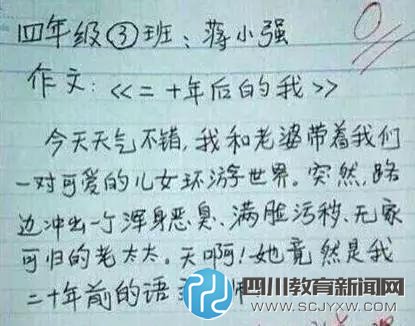 四年级③班：蒋小强
0
作文：《二十年后的我》
今天天气不错，我和老婆带着我们
一对可爱的儿女环游世界。突然，路
边冲出一个浑身恶臭、满脸污秽、无家
可归的老太太。天啊！她竟然是我
二十年前的语
四川教育新闻网
WWW.SCJYXW.COM